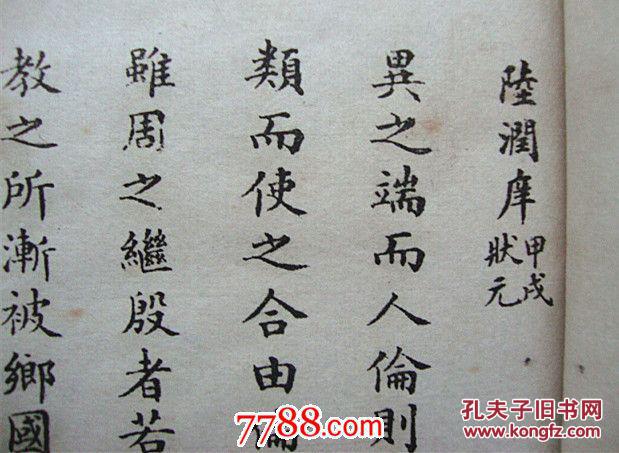 陸潤庠甲戌狀元
異之端而人倫則
類而使之合由倫
雖周之繼殷者若
教之所漸被鄉國
7788.com
孔夫子旧书网
www.kongfz.com